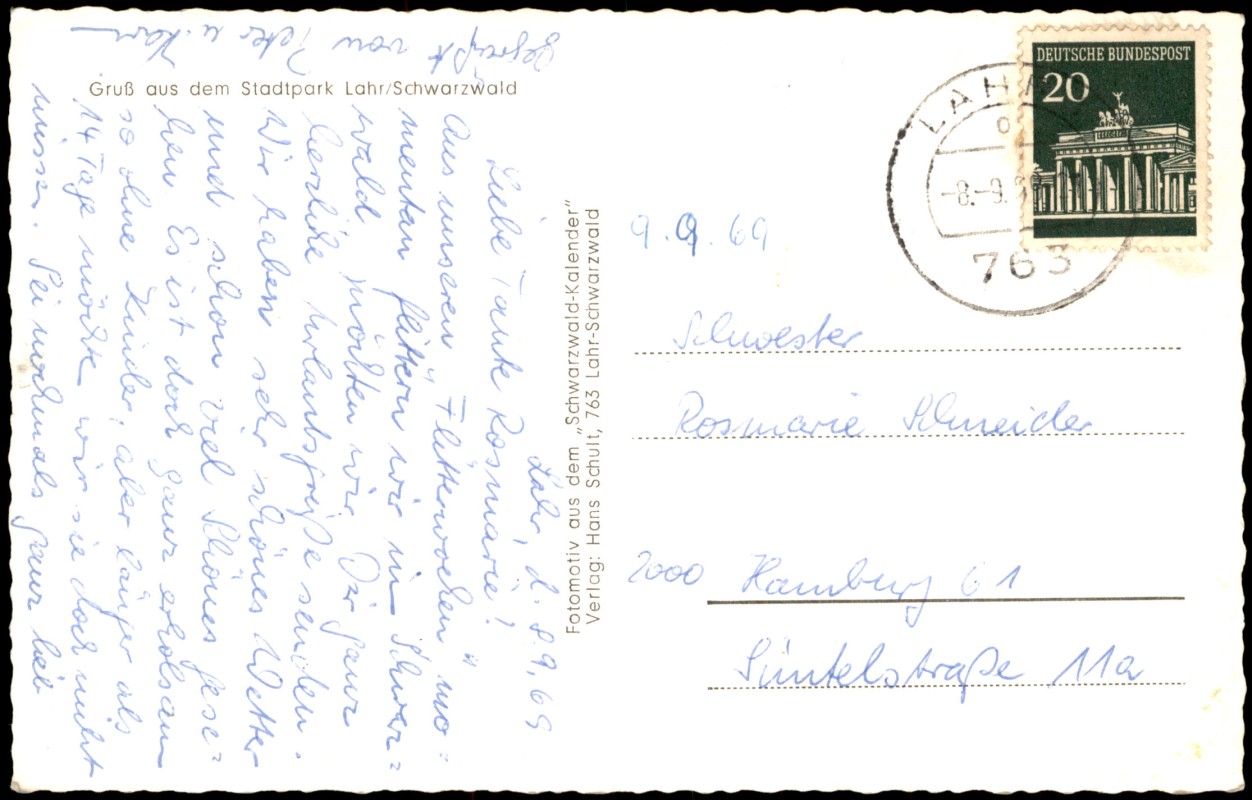 Gruß aus dem Stadtpark Lahr/Schwarzwald
Lahr, d. 8.9.69
Liebe Tante Rosmarie!
Aus unseren "Flitterwochen" mo=
mentan flittern wir im Schwarz=
wald möchten wir Dir ganz
herzliche Urlaubsgrüße senden.
Wir haben sehr schönes Wetter
und schon viel Schönes gese=
hen. Es ist doch ganz erholsam
so ohne Kinder, aber länger als
14 Tage möchten wir sie doch nicht
missen. Sei nochmals ganz lieb
gegrüßt von Peter u.
Fotomotiv aus dem „Schwarzwald-Kalender"
Verlag: Hans Schult, 763 Lahr-Schwarzwald
DEUTSCHE BUNDESPOST
20
LAHR
-8.-9.69
763
9.9.69
Schwester
Rosmarie Schneider
2000 Hamburg 61
Süntelstraße 11a